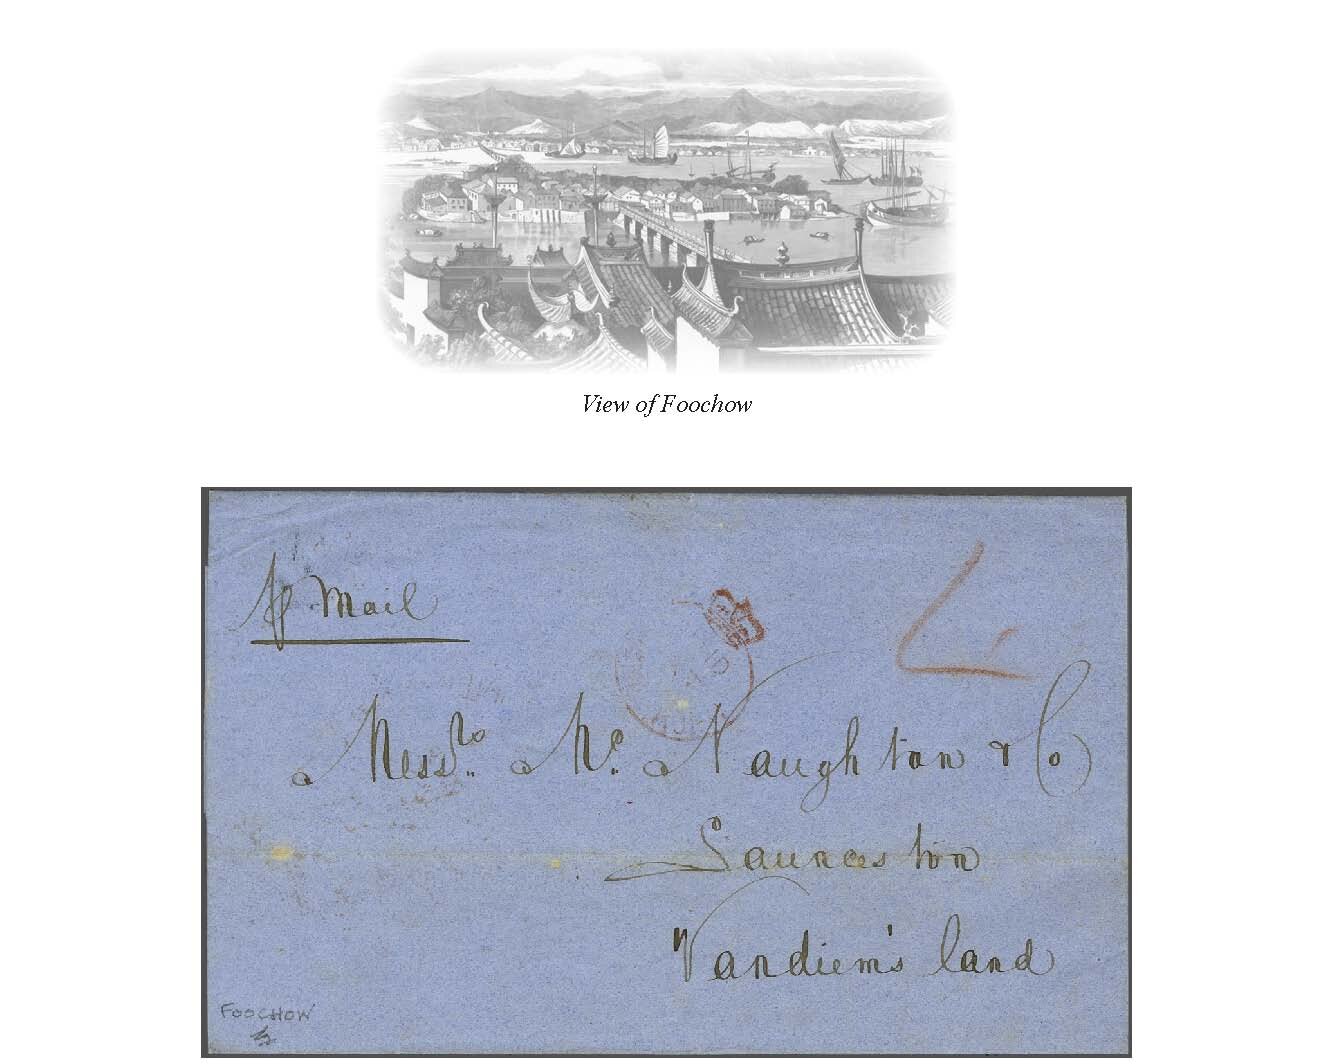 View of Foochow
p Mail
Mess.rs Mc. Naughton & Co
Launceston
Vandiem's land
FOOCHOW